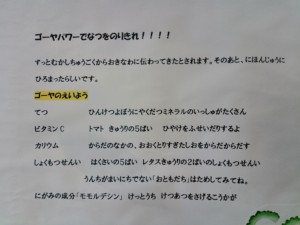 ゴーヤパワーでなつをのりきれ！！！！
ずっとむかしちゅうごくからおきなわに伝わってきたとされます。そのあと、にほんじゅうに
ひろまったらしいです。
ゴーヤのえいよう
てつ ひんけつよぼうにやくだつミネラルのいっしゅがたくさん
ビタミンC トマト きゅうりの5ばい ひやけをふせいだりするよ
カリウム からだのなかの、おおくとりすぎたしおをからだからだす
しょくもつせんい はくさいの5ばい レタスきゅうりの2ばいのしょくもつせんい
うんちがまいにちでない「おともだち」はためしてみてね。
にがみの成分「モモルデシン」 けっとうち けつあつをさげるこうかが